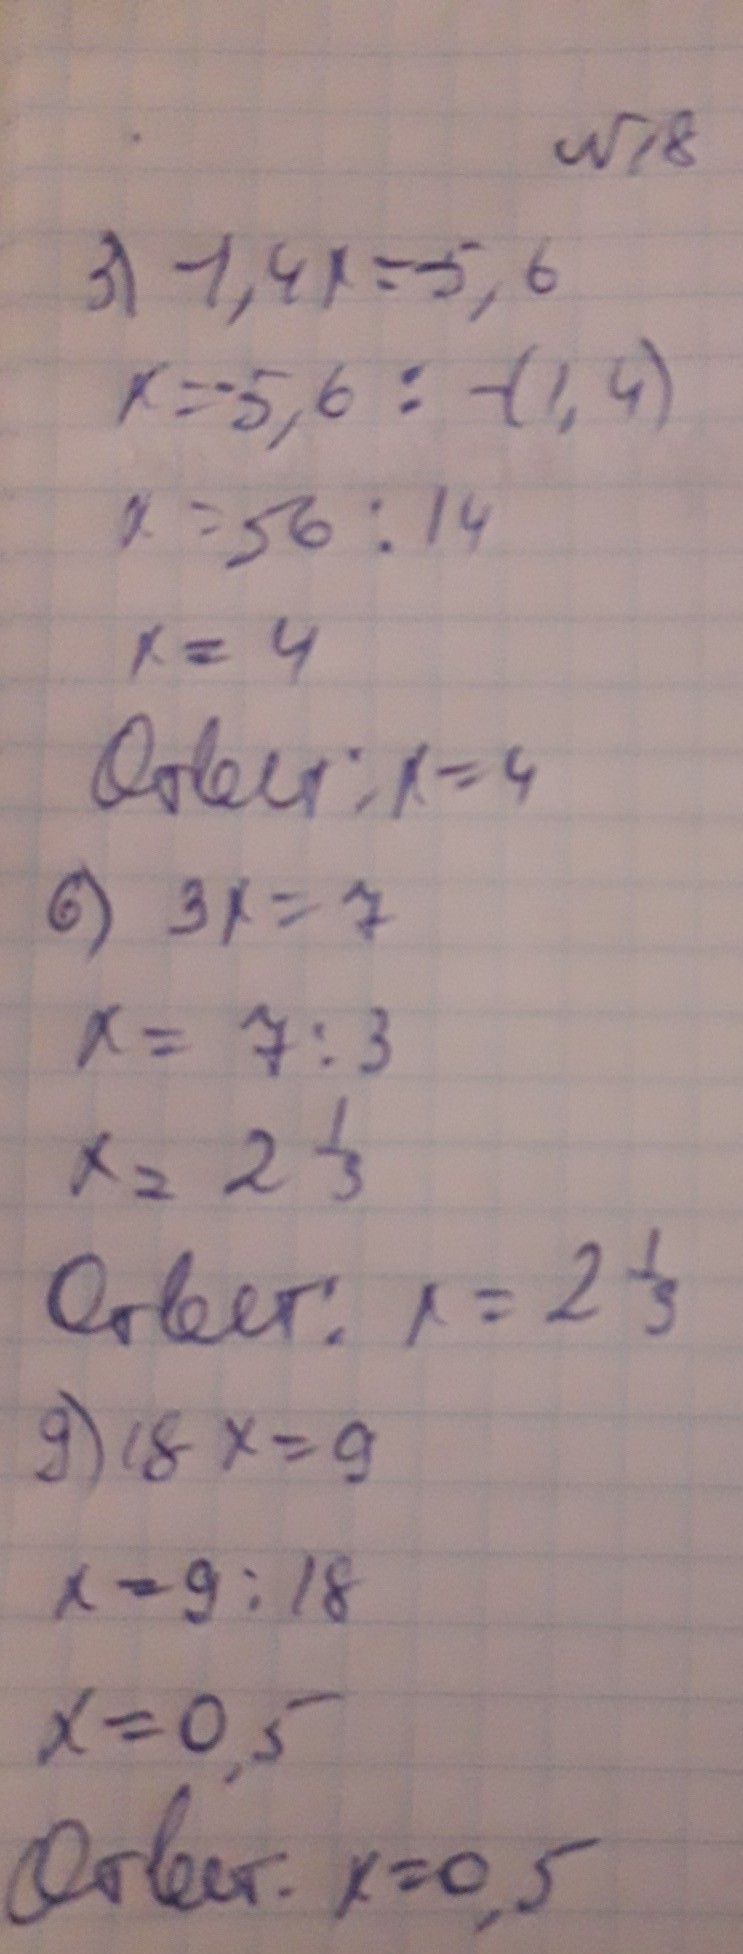 №18
3) -1,4x=-5,6
x=-5,6 : -(1,4)
x=56 : 14
x = 4
Ответ: x=4
6) 3x=7
x= 7:3
x= 2 1/3
Ответ: x = 2 1/3
9) 18x=9
x=9:18
x=0,5
Ответ. x=0,5